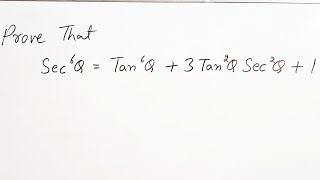 Prove That
Sec⁶Q = Tan⁶Q + 3 Tan²Q Sec²Q + 1